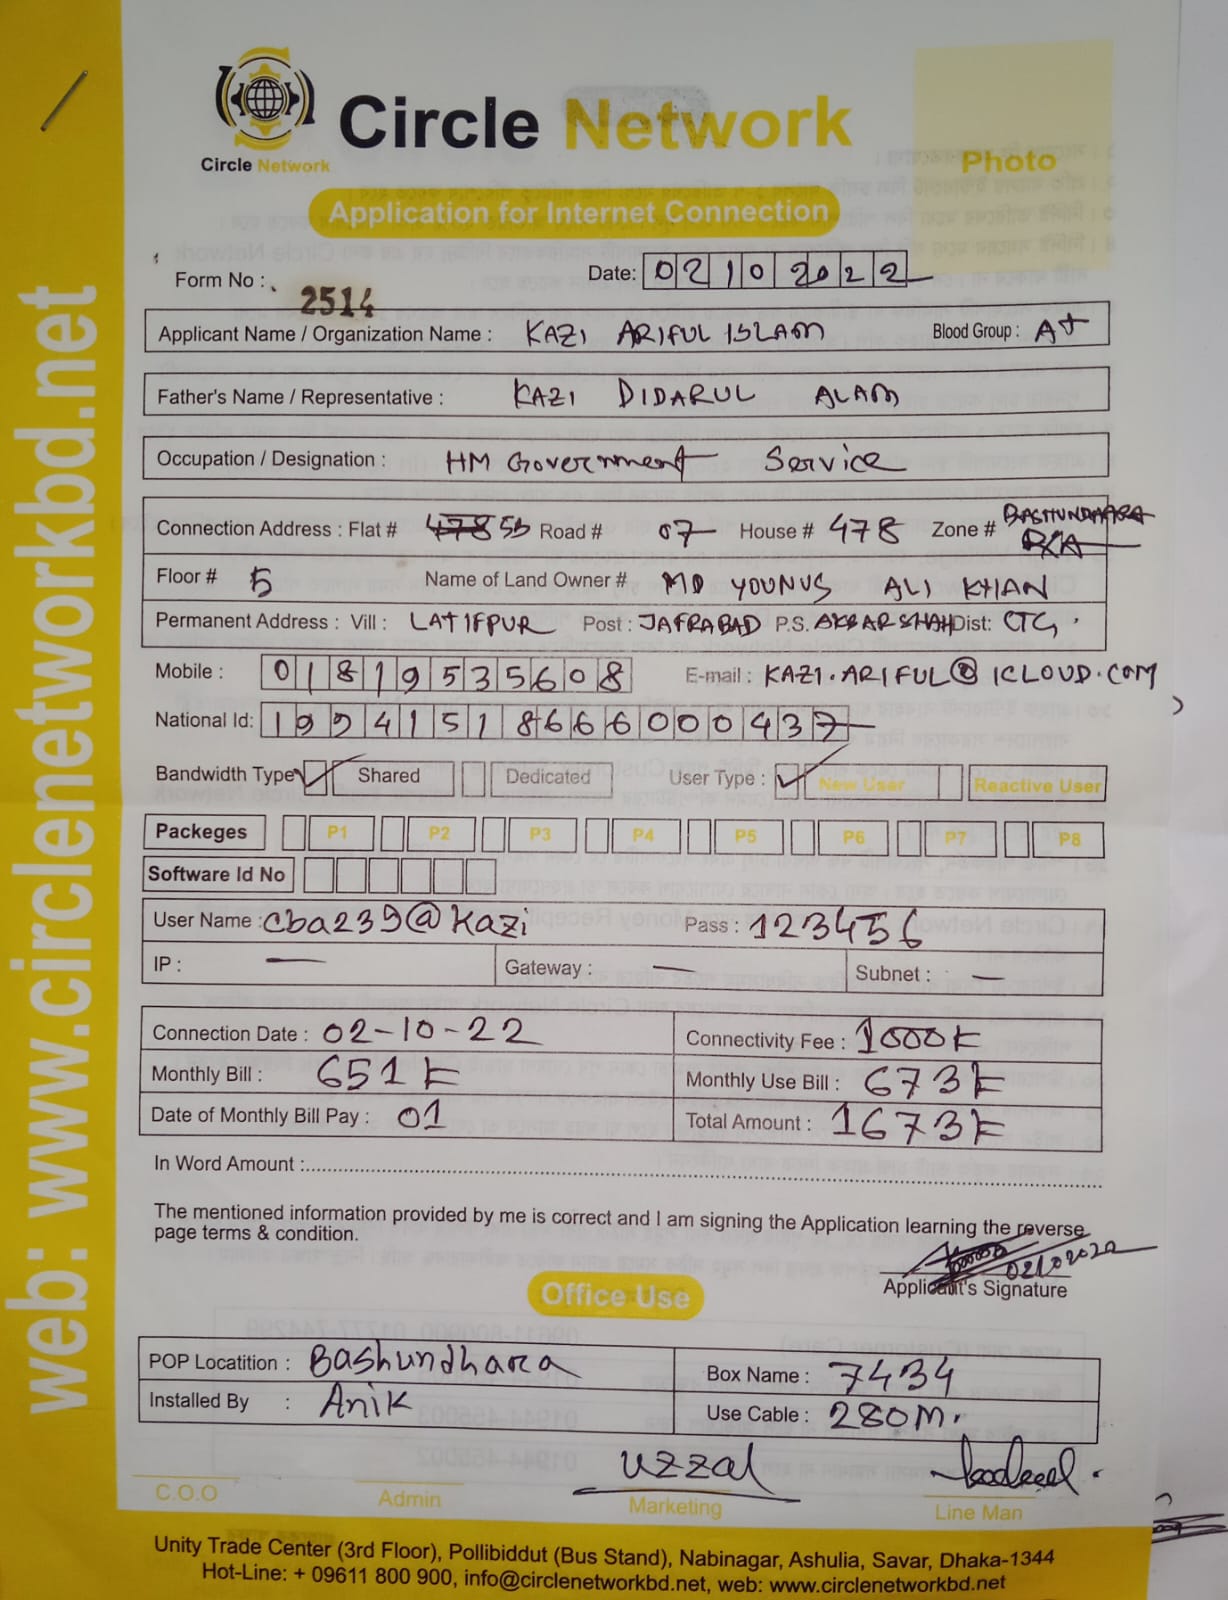 web: www.circlenetworkbd.net
Circle Network
Circle Network
Photo
Application for Internet Connection
Form No : 2514
Date: 02102022
Applicant Name / Organization Name : KAZI ARIFUL ISLAM Blood Group : A+
Father's Name / Representative : KAZI DIDARUL ALAM
Occupation / Designation : HM Government Service
Connection Address : Flat # 5B Road # 07 House # 478 Zone # BASHUNDHARA R/A
Floor # 5 Name of Land Owner # MD YOUNUS ALI KHAN
Permanent Address : Vill : LATIFPUR Post : JAFRABAD P.S. AKBARSHAH Dist: CTG.
Mobile : 01819535608 E-mail : KAZI.ARIFUL@ICLOUD.COM
National Id: 19941518666000437
Bandwidth Type Shared Dedicated User Type : New User Reactive User
Packeges P1 P2 P3 P4 P5 P6 P7 P8
Software Id No
User Name : cba239@kazi Pass : 123456
IP : — Gateway : — Subnet : —
Connection Date : 02-10-22 Connectivity Fee : 1000
Monthly Bill : 651 Monthly Use Bill : 673
Date of Monthly Bill Pay : 01 Total Amount : 1673
In Word Amount :
The mentioned information provided by me is correct and I am signing the Application learning the reverse
page terms & condition.
02102022
Applicant's Signature
Office Use
POP Locatition : Bashundhara Box Name : 7434
Installed By : Anik Use Cable : 280M.
uzzal
C.O.O Admin Marketing Line Man
Unity Trade Center (3rd Floor), Pollibiddut (Bus Stand), Nabinagar, Ashulia, Savar, Dhaka-1344
Hot-Line: + 09611 800 900, info@circlenetworkbd.net, web: www.circlenetworkbd.net